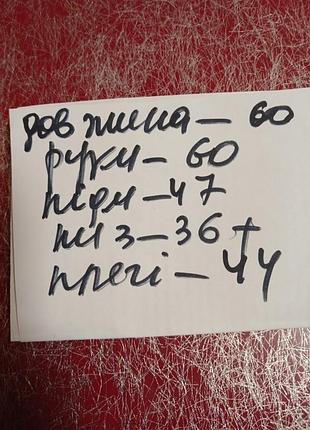 довжина – 60
руки – 60
підм – 47
низ – 36 +
плечі – 44